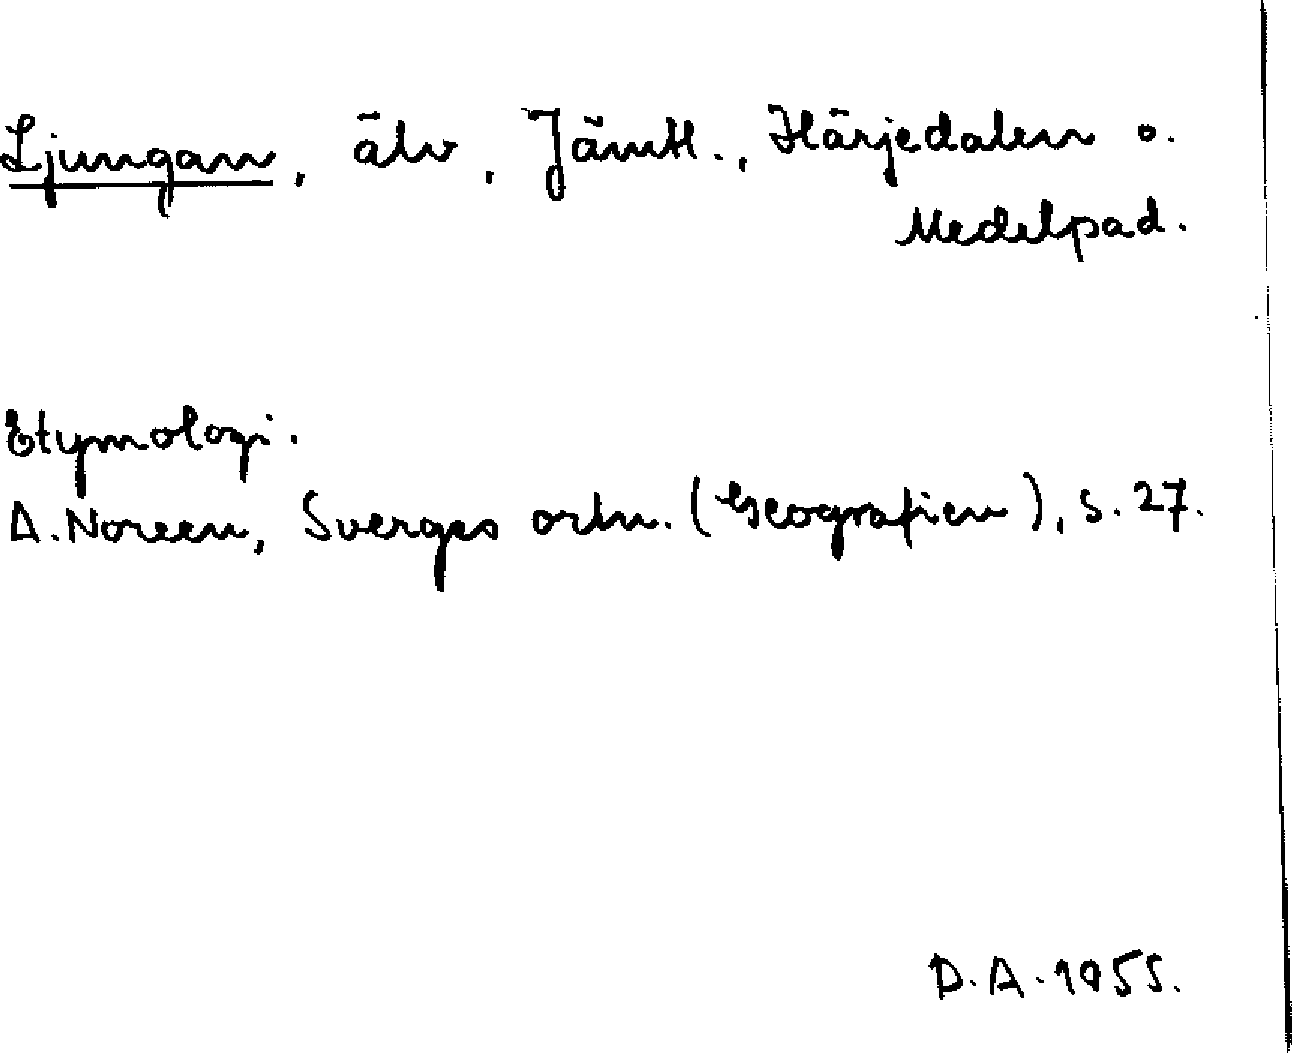 Ljungan, älv, Jämtl., Härjedalen o.
Medelpad.
Etymologi.
A. Noreen, Sverges ortn. (Geografien), s. 27.
D.A. 1955.